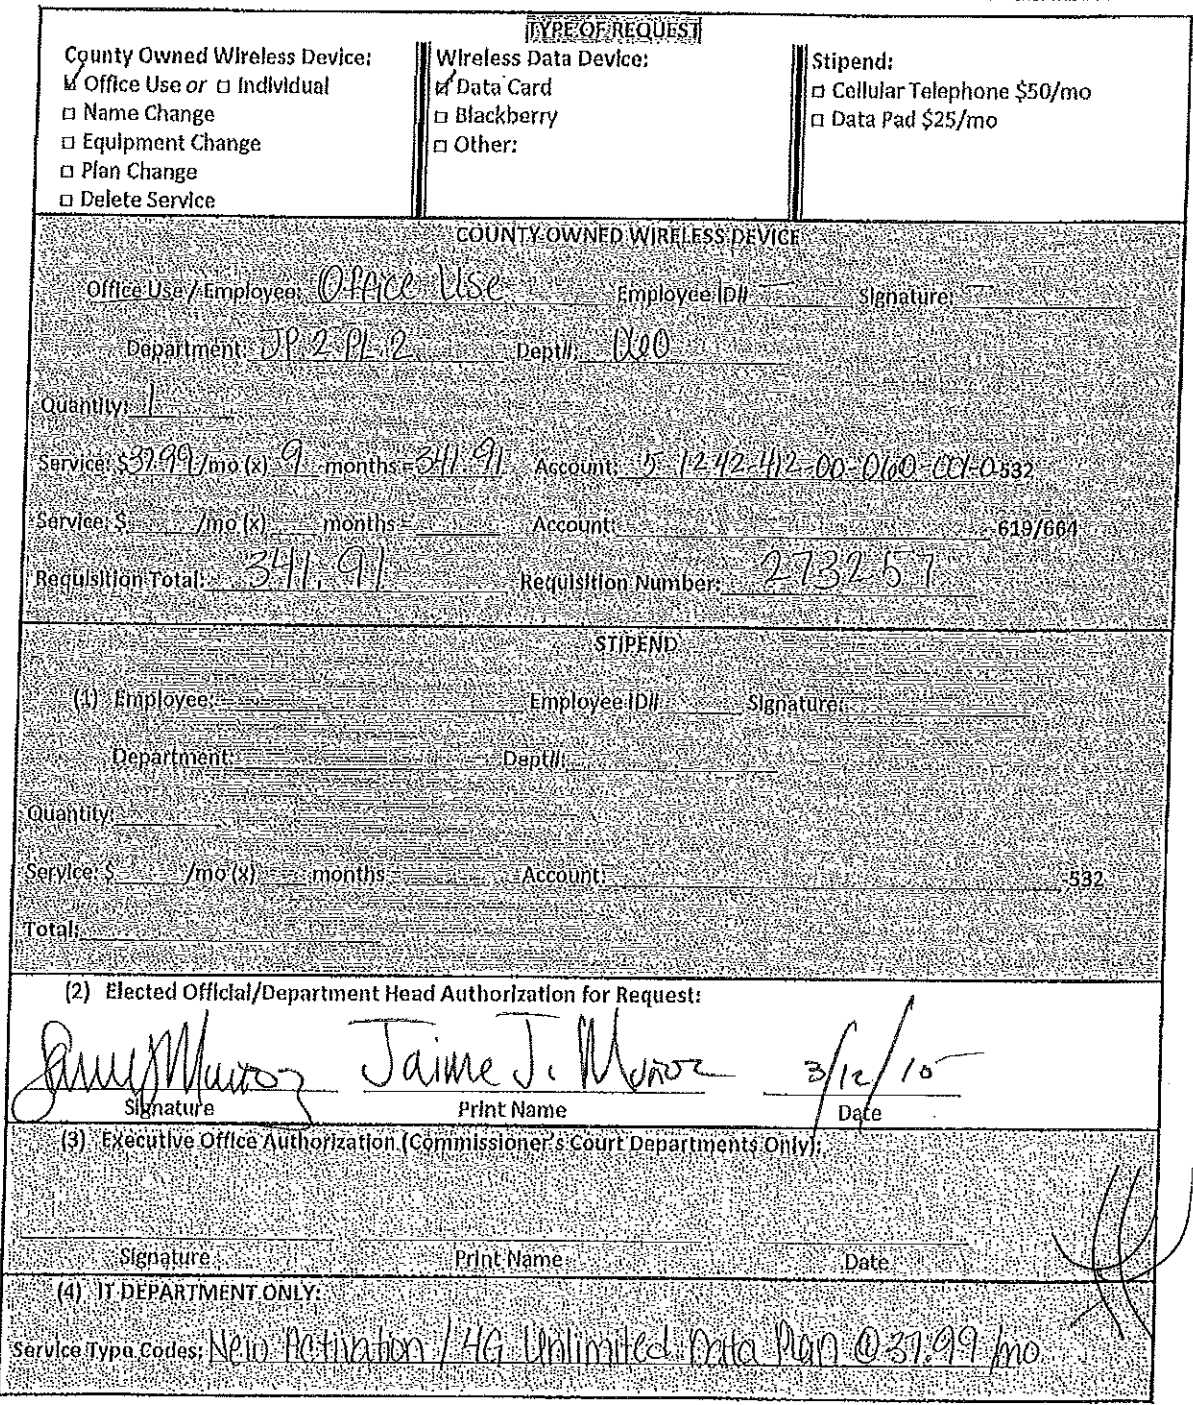 TYPE OF REQUEST
County Owned Wireless Device:
Office Use or □ Individual
□ Name Change
□ Equipment Change
□ Plan Change
□ Delete Service
Wireless Data Device:
Data Card
□ Blackberry
□ Other:
Stipend:
□ Cellular Telephone $50/mo
□ Data Pad $25/mo
COUNTY OWNED WIRELESS DEVICE
Office Use / Employee: Office Use Employee ID# Signature:
Department: JP. 2 PL. 2 Dept#:
Quantity: 1
Service: $37.99/mo (x) 9 months = 341.91 Account: 5-1242-412-00- -532
Service: $ /mo (x) months = Account: -619/664
Requisition Total: 341.91 Requisition Number: 273257
STIPEND
(1) Employee: Employee ID# Signature:
Department: Dept#:
Quantity:
Service: $ /mo (x) months Account: -532
Total:
(2) Elected Official/Department Head Authorization for Request:
Jaime J. Munoz 3/12/15
Signature Print Name Date
(3) Executive Office Authorization (Commissioner's Court Departments Only):
Signature Print Name Date
(4) IT DEPARTMENT ONLY:
Service Type Codes: New Activation / 4G Unlimited Data Plan @ 37.99 /mo